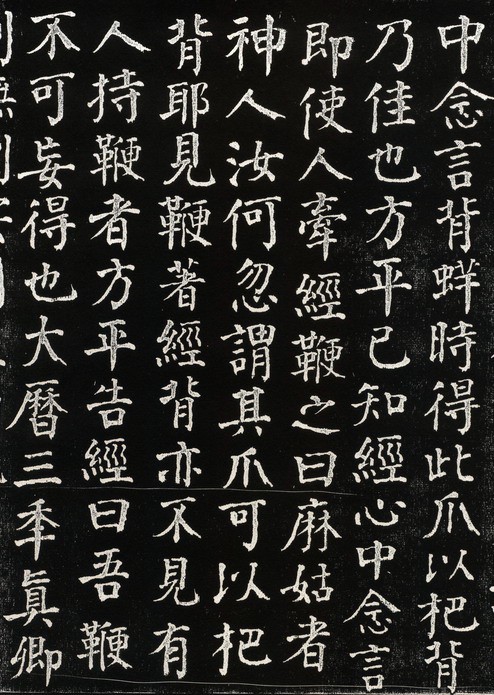 中念言背蛘時得此爪以杷背
乃佳也方平已知經心中念言
即使人牽經鞭之曰麻姑者
神人汝何忽謂其爪可以杷
背耶見鞭著經背亦不見有
人持鞭者方平告經曰吾鞭
不可妄得也大曆三年真卿